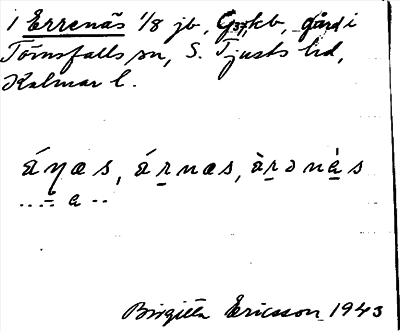 i Errenäs 1/8 jb, G3 kb, gård i
Törnsfalls sn, S. Tjusts hd,
Kalmar l.
áŋas, árnæs, àrənàs
..... a ..
Birgitta Ericsson 1943